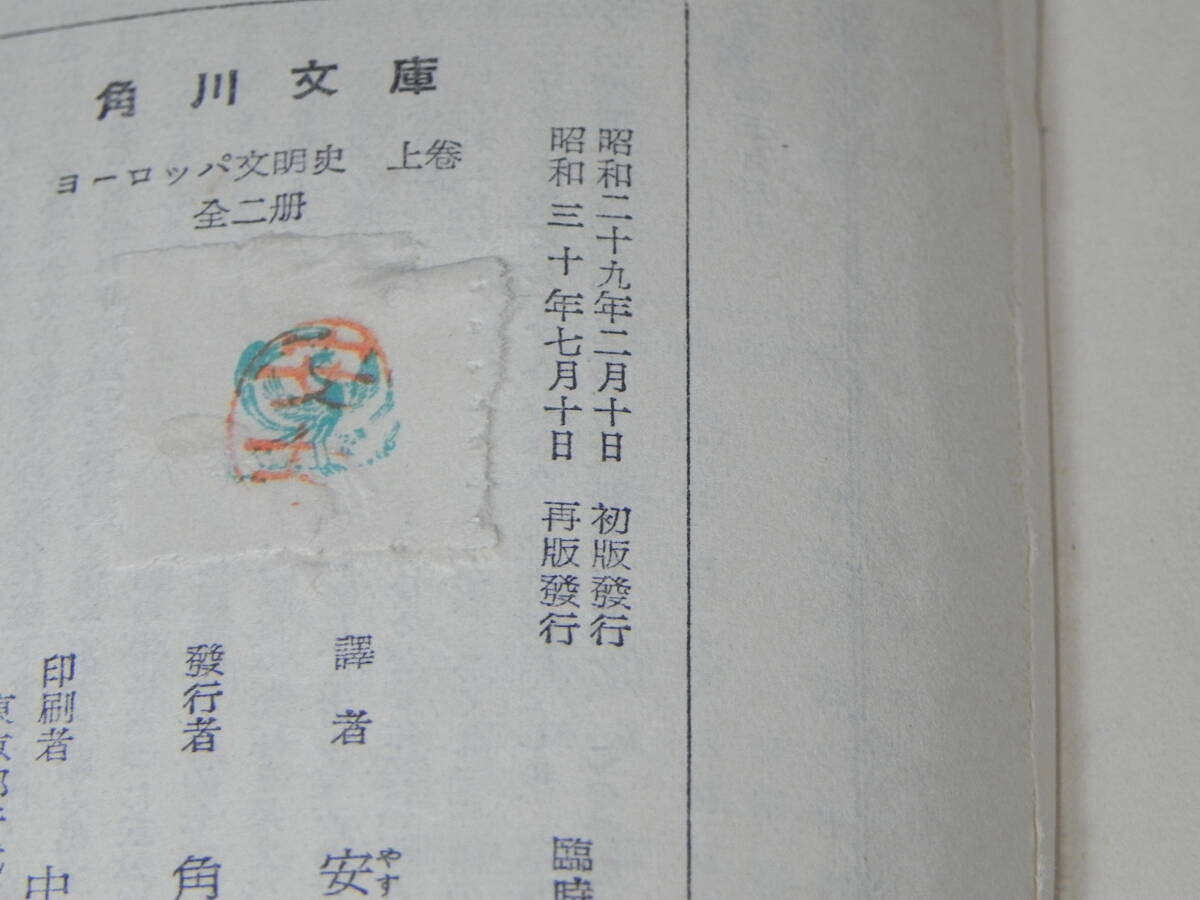 角川文庫
ヨーロッパ文明史 上卷
全二册
昭和二十九年二月十日 初版發行
昭和三十年七月十日 再版發行
臨時
譯者 安
やす
發行者 角
印刷者 中
東京都千代